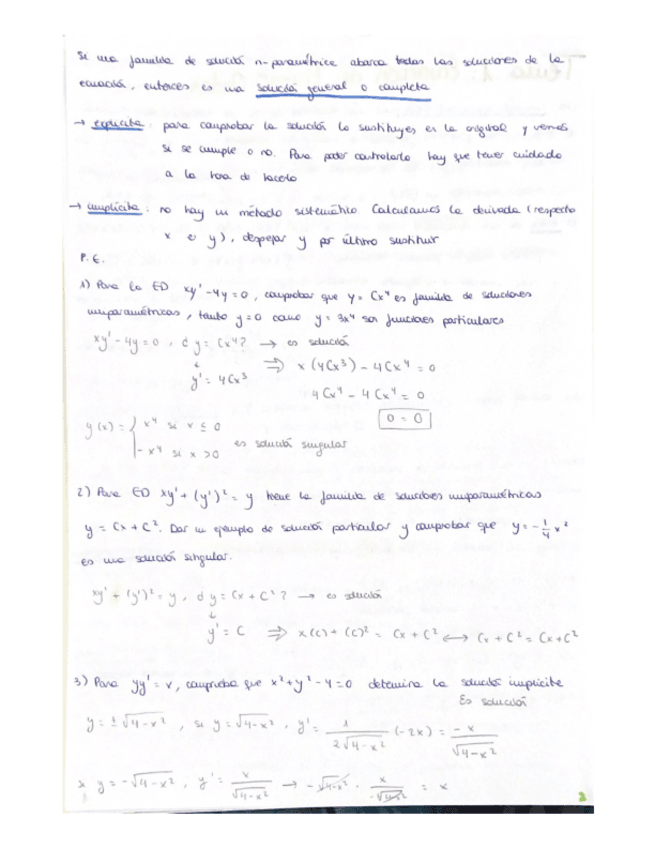 Si una familia de solución n-paramétrica abarca todas las soluciones de la
ecuación, entonces es una solución general o completa
→ explícita: para comprobar la solución lo sustituyes en la original y vemos
si se cumple o no. Para poder controlarlo hay que tener cuidado
a la hora de hacerlo
→ implícita: no hay un método sistemático. Calculamos la derivada (respecto
x e y), despejar y por último sustituir
P.E.
1) Para la ED xy' - 4y = 0, comprobar que y = Cx⁴ es familia de soluciones
uniparamétricas, tanto y=0 como y = 3x⁴ son funciones particulares
xy' - 4y = 0, d y = Cx⁴? → es solución
↓
y' = 4Cx³ ⇒ x(4Cx³) - 4Cx⁴ = 0
4Cx⁴ - 4Cx⁴ = 0
0 = 0
y(x) = { x⁴ si x ≤ 0
-x⁴ si x > 0 es solución singular
2) Para ED xy' + (y')² = y tiene la familia de soluciones uniparamétricas
y = Cx + C². Dar un ejemplo de solución particular y comprobar que y = -1/4 x²
es una solución singular.
xy' + (y')² = y, d y = Cx + C²? → es solución
↓
y' = C ⇒ x(C) + (C)² = Cx + C² ⟷ Cx + C² = Cx + C²
3) Para yy' = x, comprueba que x² + y² - 4 = 0 determina la solución implícita
Es solución
y = ± √4-x², si y = √4-x², y' = 1/(2√4-x²) (-2x) = -x/√4-x²
si y = -√4-x², y' = x/√4-x² → -√4-x² · x/-√4-x² = x
2